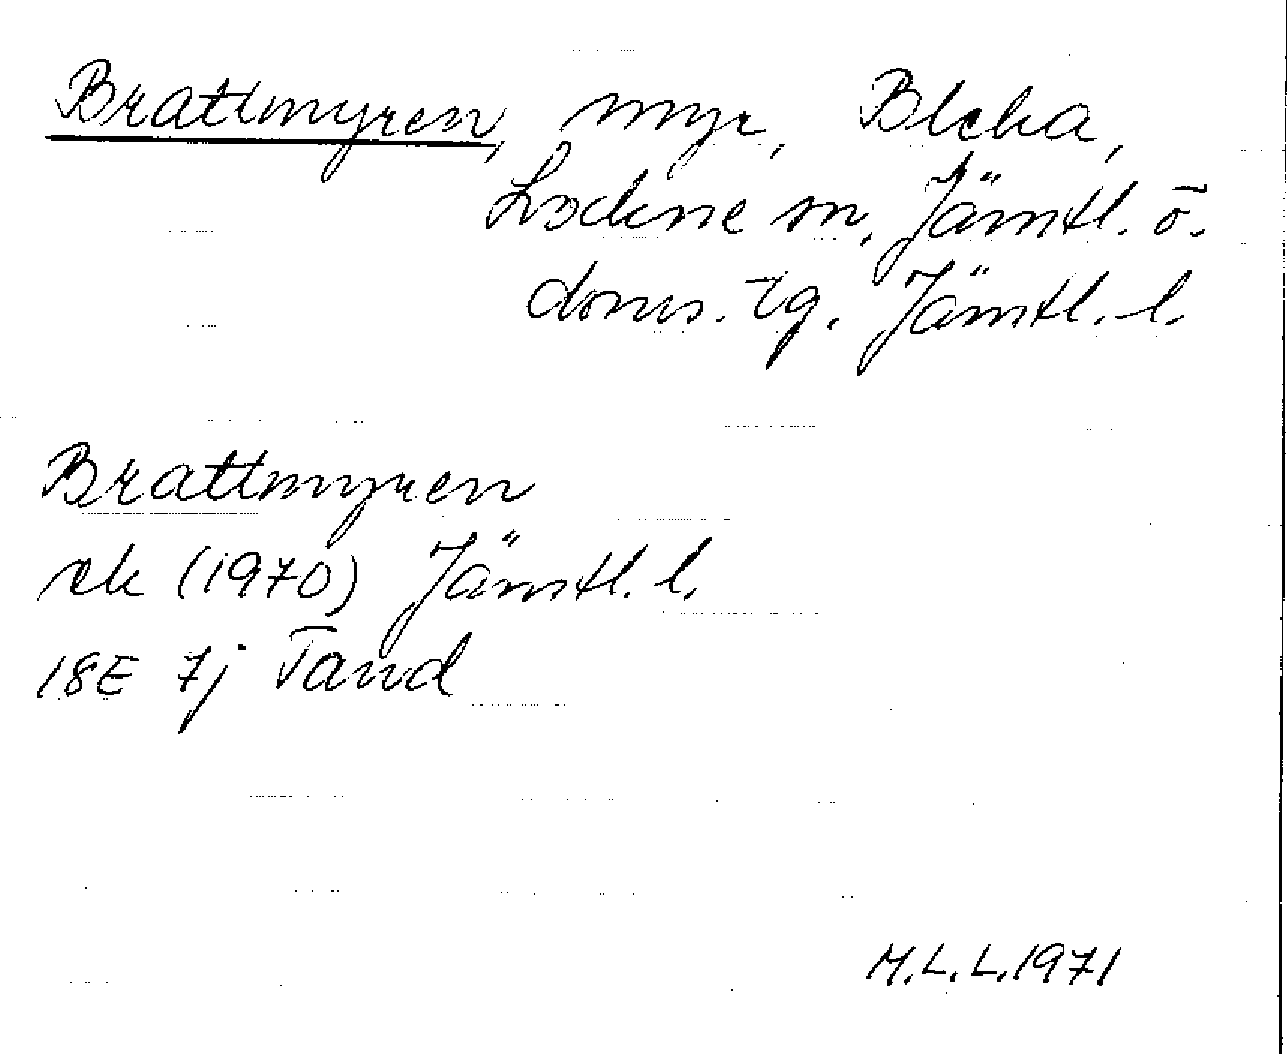 Brattmyren, myr, Bleka,
Lockne sn, Jämtl. ö.
doms. tg. Jämtl. l.
Brattmyren
ek (1970) Jämtl. l.
18E 7j Tand
M.L.L. 1971